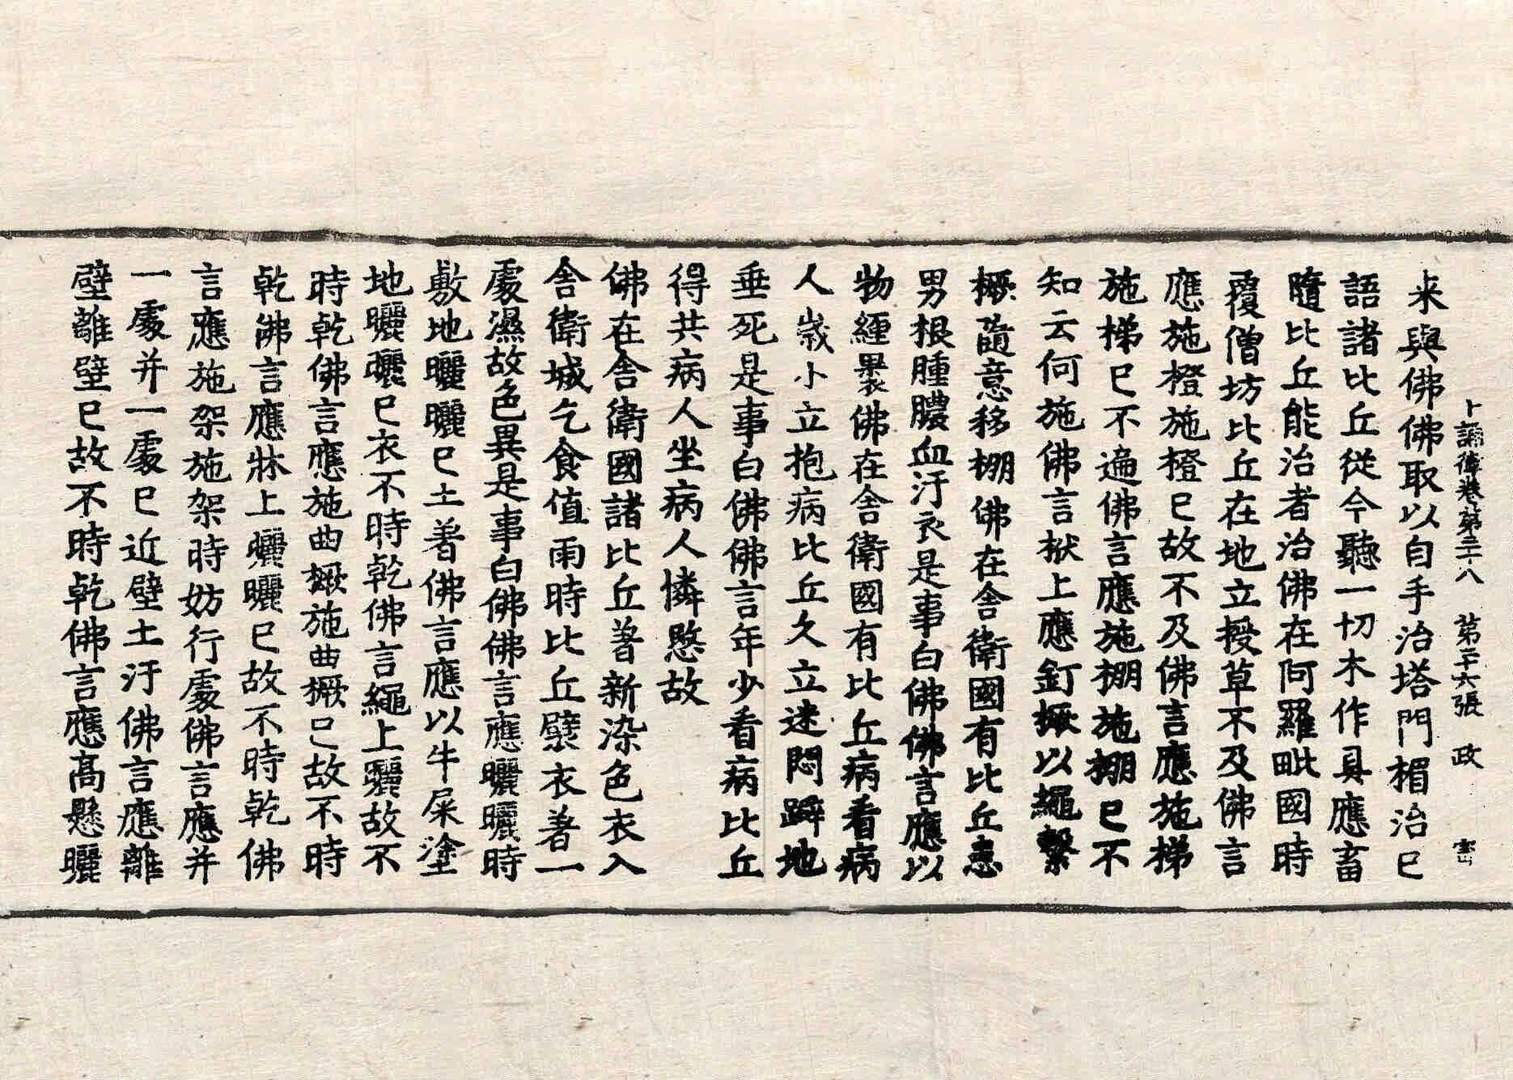 十誦律卷第三十八　第二十六張　政
来與佛佛取以自手治塔門楣治已
語諸比丘從今聽一切木作具應畜
隨比丘能治者治佛在阿羅毗國時
覆僧坊比丘在地立授草不及佛言
應施橙施橙已故不及佛言應施梯
施梯已不遍佛言應施棚施棚已不
知云何施佛言栿上應釘橛以繩繫
橛隨意移棚佛在舍衛國有比丘患
男根腫膿血汙衣是事白佛佛言應以
物纏裹佛在舍衛國有比丘病看病
人歲小立抱病比丘久立迷悶躃地
垂死是事白佛佛言年少看病比丘
得共病人坐病人憐愍故
佛在舍衛國諸比丘著新染色衣入
舍衛城乞食值雨時比丘襞衣著一
處濕故色異是事白佛佛言應曬曬時
敷地曬曬已土著佛言應以牛屎塗
地曬曬已衣不時乾佛言繩上曬故不
時乾佛言應施曲橛施曲橛已故不時
乾佛言應牀上曬曬已故不時乾佛
言應施架施架時妨行處佛言應并
一處并一處已近壁土汙佛言應離
壁離壁已故不時乾佛言應高懸曬